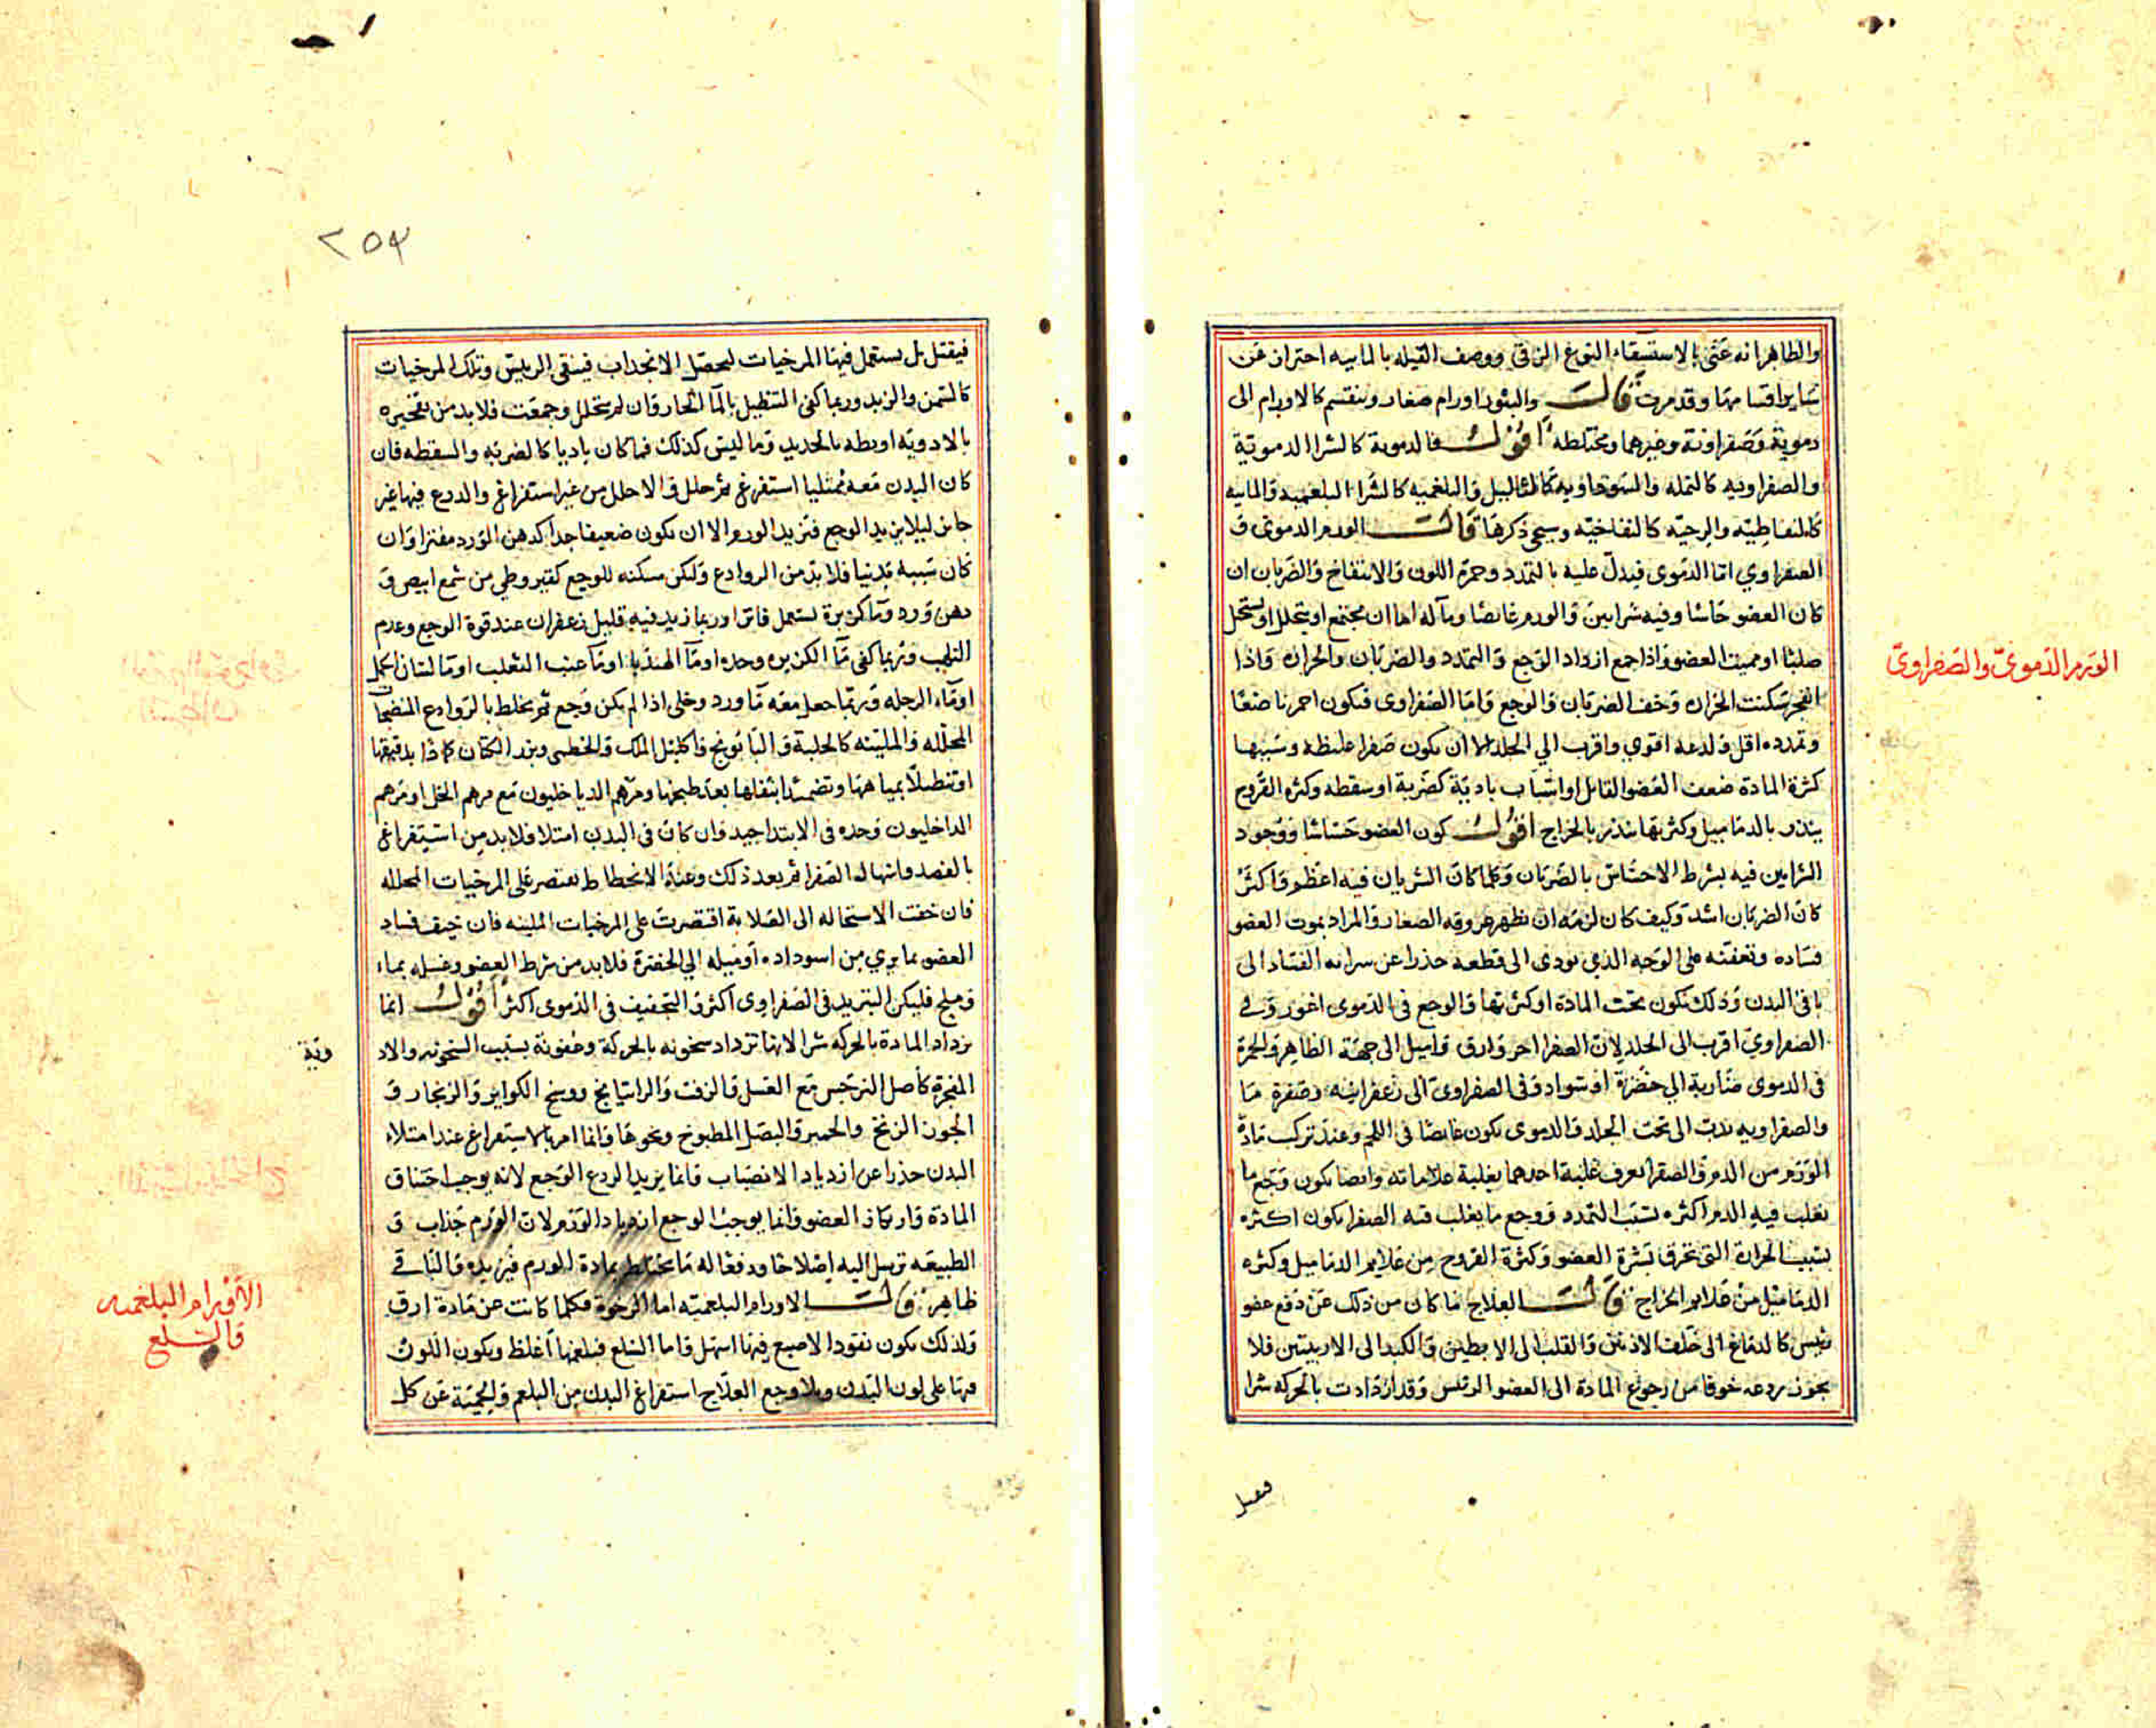 والظاهر انه عنى بالاستسقاء النوع الزقى ووصف القيله بالماييه احتراز عن
ساير اقسامها وقد مرت قالـــ والبثور اورام صغار وتنقسم كالاورام الى
دموية وصفراوية وغيرهما ومختلطه اقولـــ فالدموية كالشرا الدموية
والصفراوية كالنمله والسوداوية كالثاليل والبلغميه كالشرا البلغميه والماييه
كالنفاطيه والريحيه كالنفاخيه وسيجى ذكرها قالـــ الورم الدموى و
الصفراوي اما الدموى فيدل عليه بالتمدد وحمرة اللون والانتفاخ والضربان ان
كان العضو حاسا وفيه شرايين والورم غايصا ومآله اما ان يجتمع او يتحلل او يستحيل
صلبا او يميت العضو واذا جمع ازداد الوجع والتمدد والضربان والحرارة واذا
انفجر سكنت الحراره وخف الضربان والوجع واما الصفراوى فيكون احمر ناصعا
وتمدده اقل ولدعه اقوي واقرب الي الجلد الا ان يكون صفرا غليظة وسببها
كثرة المادة ضعف العضو القابل او اسباب بادية كضربة او سقطه وكثره القروح
ينذر بالدماميل وكثرتها ينذر بالخراج اقولـــ كون العضو حساسا ووجود
الشرايين فيه بشرط الاحساس بالضربان وكلما كان الشريان فيه اعظم واكثر
كان الضربان اشد وكيف كان لزمه ان يظهر عروقه الصغار والمراد بموت العضو
فساده وتعفنه على الوجه الذي يودى الى قطعه حذرا عن سراية الفساد الى
باقى البدن وذلك يكون بحت المادة او كثرتها والوجع فى الدموى اغور وفى
الصفراوي اقرب الى الجلد لان الصفرا احر وارق واميل الى جهة الظاهر والحمرة
فى الدموى ضاربة الي خضرة او سواد وفى الصفراوى الى زعفرانيه وصفرة ما
والصفراويه تدب الى تحت الجلد والدموى يكون غايصا فى اللحم وعند تركب مادة
الورم من الدم والصفرا يعرف غلبة احدهما بغلبة علاماته وايضا يكون وجع ما
يغلب فيه الدم اكثره بسبب التمدد ووجع ما يغلب فيه الصفرا يكون اكثره
بسبب الحرارة التى تحرق بشرة العضو وكثرة القروح من علايم الدماميل وكثره
الدماميل من علايم الخراج قالـــ العلاج ما كان من ذلك عن دفع عضو
رئيس كالدماغ الى خلف الاذنين والقلب الى الابطين والكبد الى الاربيتين فلا
يجوز ردعه خوفا من رجوع المادة الى العضو الرئيس وقد ازدادت بالحركه شرا
الورم الدموى والصفراوى
فيقتل
٢٥٣
فيقتل بل يستعمل فيها المرخيات ليحصل الانجداب فينقى الرييس وتلك المرخيات
كالسمن والزبد وربما كفى التنظيل بالما الحار وان لم يتحلل وجمعت فلا بد من تفجيره
بالادوية او بطه بالحديد وما ليس كذلك فما كان باديا كالضربه والسقطه فان
كان البدن معه ممتليا استفرغ ثم حلل والا حلل من غير استفراغ والردع فيها غير
جايز ليلا يزيد الوجع فتزيد الورم الا ان يكون ضعيفا جدا كدهن الورد مفترا وان
كان سببه بدنيا فلا بد من الروادع ولكن مسكنه للوجع كقيروطي من شمع ابيض و
دهن ورد وما كزبرة يستعمل فاترا وربما زيد فيه قليل زعفران عند قوة الوجع وعدم
التلهب وربما كفى ما الكزبره وحده او ما الهندبا او ما عنب الثعلب او ما لسان الحمل
او ماء الرجله وربما جعل معه ما ورد وخل اذا لم يكن وجع ثم يخلط بالروادع المنضجات
المحلله والملينه كالحلبة والبابونج واكليل الملك والخطمى وبزر الكتان ضمادا بدقيقها
او تنطيلا بمياهها وتضميدا بثفلها بعد طبخها ومرهم الدياخليون مع مرهم الخل او مرهم
الداخليون وحده فى الابتدا جيد وان كان فى البدن امتلا فلا بد من استفراغ
بالفصد واسهال الصفرا ثم بعد ذلك وعند الانحطاط يقتصر على المرخيات المحلله
فان خفت الاستحاله الى الصلابة اقتصرت على المرخيات الملينه فان خيف فساد
العضو بما يري من اسوداده او ميله الي الخضرة فلا بد من شرط العضو وغسله بماء
وملح فليكن التبريد فى الصفراوى اكثر والتجفيف فى الدموى اكثر اقولـــ انما
يزداد المادة بالحركه شرا لانها تزداد سخونه بالحركة وعفونة بسبب السخونه والاد
وية
المفجرة كأصل النرجس مع العسل والزفت والراتيانج ووسخ الكواير والزنجار و
الجوز الزنخ والخمير والبصل المطبوخ ونحوها وانما امر بالاستفراغ عند امتلاء
البدن حذرا عن ازدياد الانصباب وانما يزيد الردع الوجع لانه يوجب اختناق
المادة وارتكاز العضو وانما يوجب الوجع ازدياد الورم لان الورم جذاب و
الطبيعه ترسل اليه اصلاحا ودفعا له ما يختلط بمادة الورم فيزيده والباقى
ظاهر قالـــ الاورام البلغميه اما الرخوة فكلما كانت عن مادة ارق
ولذلك يكون نفوذ الاصبع فيها اسهل واما السلع فبلغمها اغلظ ويكون اللون
فيها على لون البدن وبلا وجع العلاج استفراغ البدن من البلغم والحمية عن كل
الاورام البلغميه
والسلع